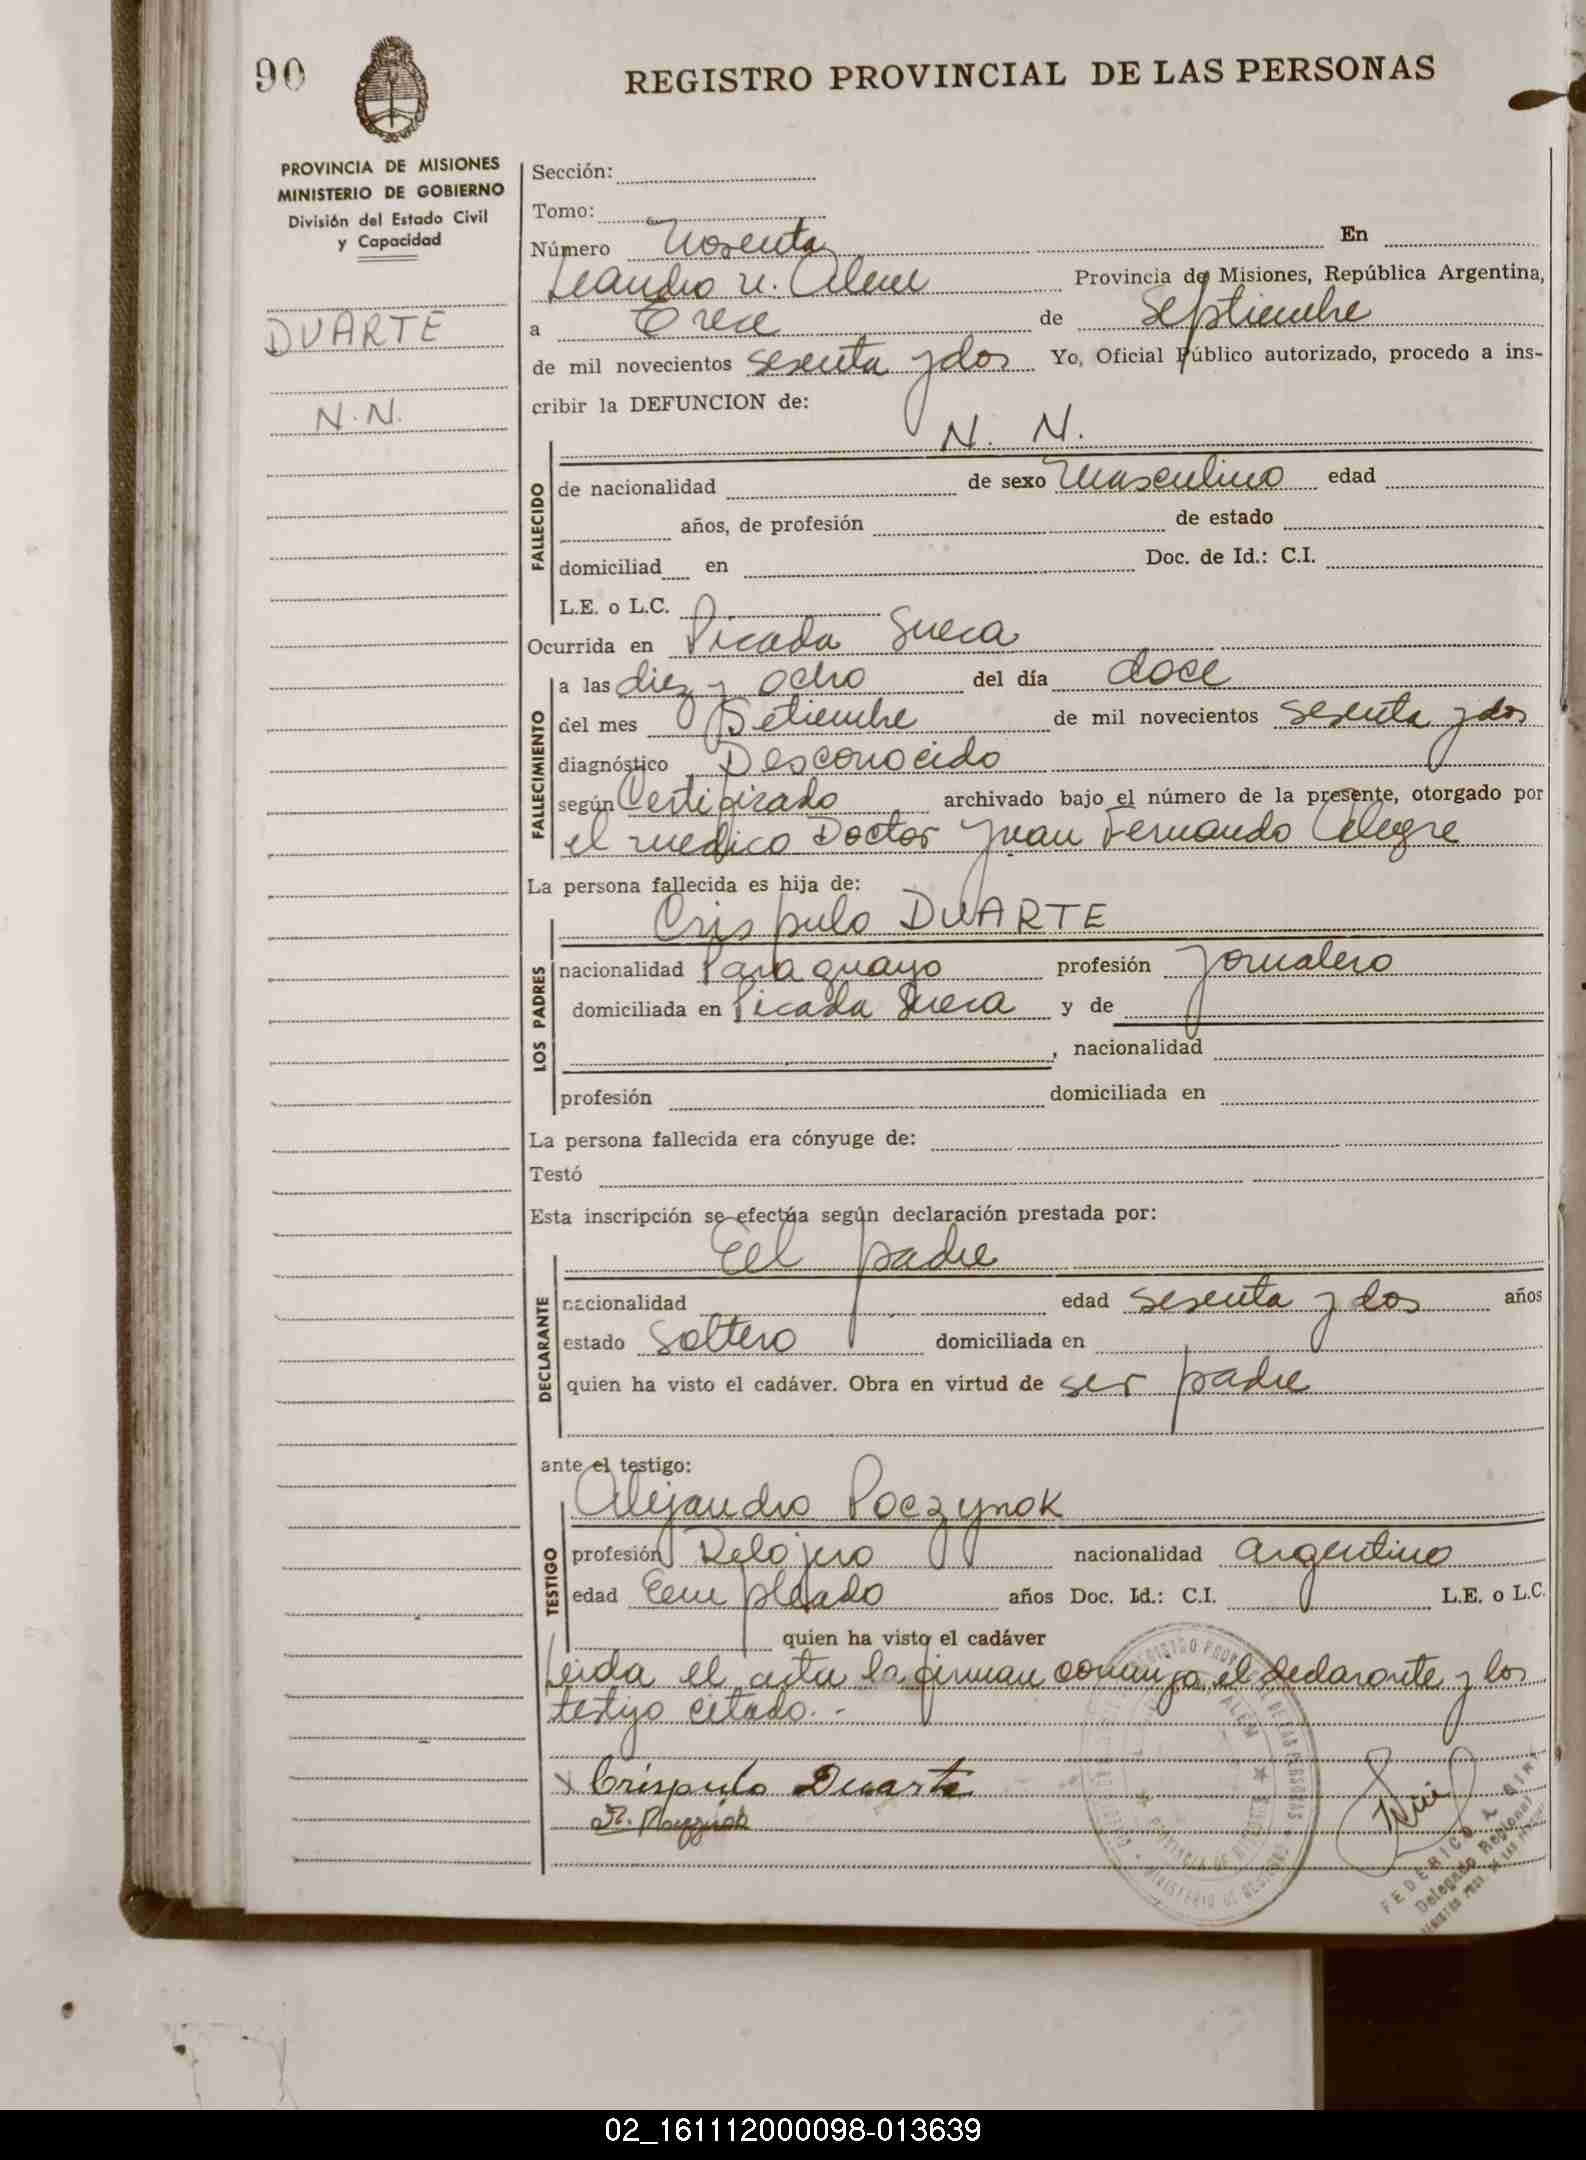 90
REGISTRO PROVINCIAL DE LAS PERSONAS
PROVINCIA DE MISIONES
MINISTERIO DE GOBIERNO
División del Estado Civil
y Capacidad
DUARTE
N.N.
Sección:
Tomo:
Número Noventa En
Leandro N. Alem Provincia de Misiones, República Argentina,
a Trece de Septiembre
de mil novecientos sesenta y dos Yo, Oficial Público autorizado, procedo a ins-
cribir la DEFUNCION de:
N. N.
FALLECIDO
de nacionalidad de sexo Masculino edad
años, de profesión de estado
domiciliad en Doc. de Id.: C.I.
L.E. o L.C.
Ocurrida en Picada Sueca
FALLECIMIENTO
a las diez y ocho del día doce
del mes Setiembre de mil novecientos sesenta y dos
diagnóstico Desconocido
según Certificado archivado bajo el número de la presente, otorgado por
el medico Doctor Juan Fernando Alegre
La persona fallecida es hija de:
LOS PADRES
Crispulo DUARTE
nacionalidad Paraguayo profesión Jornalero
domiciliada en Picada Sueca y de
, nacionalidad
profesión domiciliada en
La persona fallecida era cónyuge de:
Testó
Esta inscripción se efectúa según declaración prestada por:
DECLARANTE
El padre
nacionalidad edad sesenta y dos años
estado Soltero domiciliada en
quien ha visto el cadáver. Obra en virtud de ser padre
ante el testigo:
TESTIGO
Alejandro Poczynok
profesión Relojero nacionalidad argentino
edad Empleado años Doc. Id.: C.I. L.E. o L.C.
quien ha visto el cadáver
Leida el acta la firman conmigo, el declarante y los
testigo citado.-
x Críspulo Duarte
FEDERICO A
Delegado Regional
02_161112000098-013639